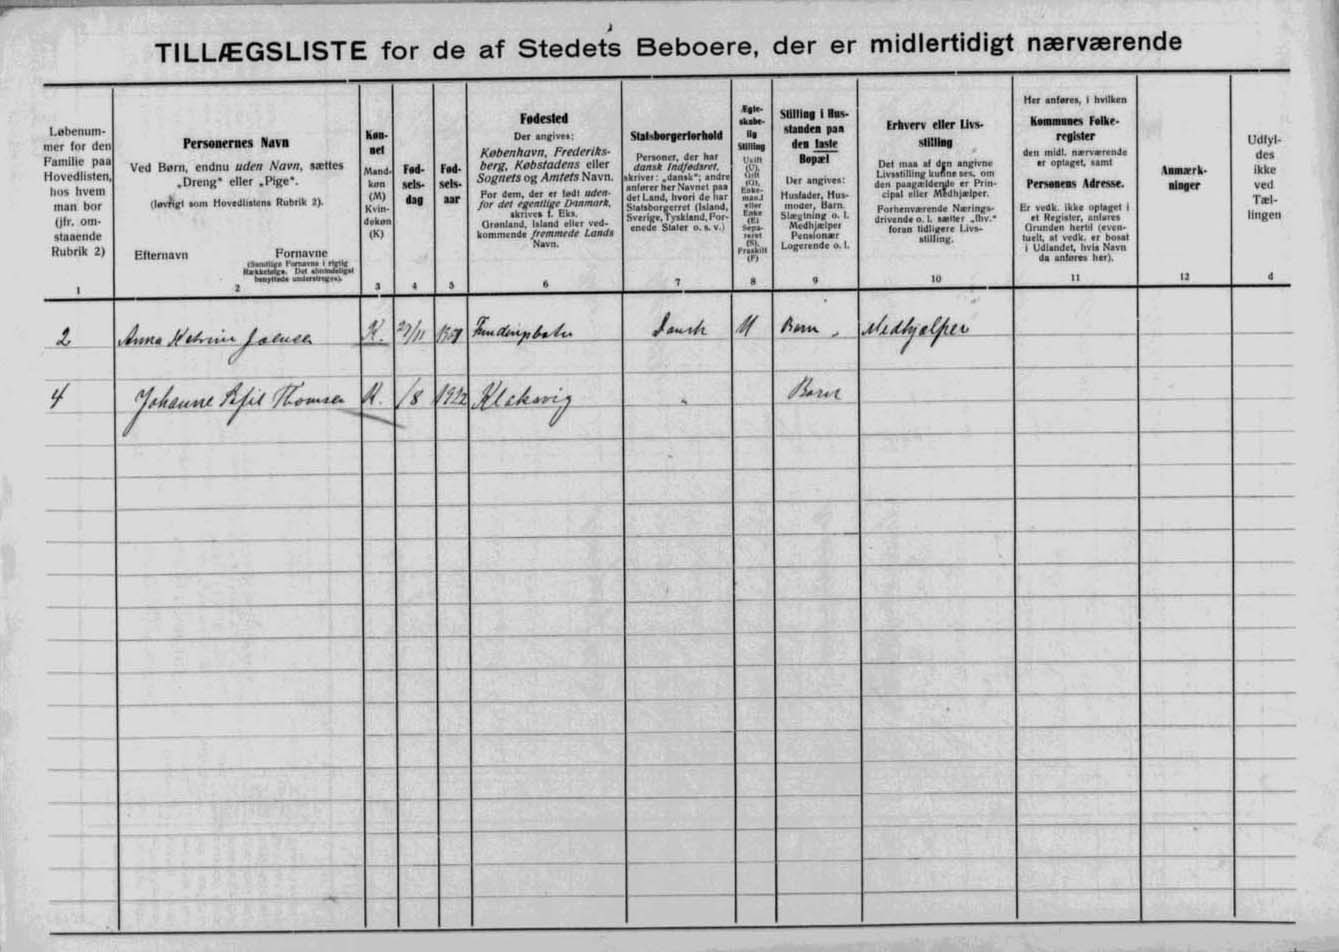 TILLÆGSLISTE for de af Stedets Beboere, der er midlertidigt nærværende
Løbenum-
mer for den
Familie paa
Hovedlisten,
hos hvem
man bor
(jfr. om-
staaende
Rubrik 2)
1
Personernes Navn
Ved Børn, endnu uden Navn, sættes
„Dreng“ eller „Pige“.
(Iøvrigt som Hovedlistens Rubrik 2).
Efternavn Fornavne
(Samtlige Fornavne i rigtig
Rækkefølge. Det almindeligst
benyttede understreges).
2
Køn-
net
Mand-
køn
(M)
Kvin-
dekøn
(K)
3
Fød-
sels-
dag
4
Fød-
sels-
aar
5
Fødested
Der angives:
København, Frederiks-
berg, Købstadens eller
Sognets og Amtets Navn.
For dem, der er født uden-
for det egentlige Danmark,
skrives f. Eks.
Grønland, Island eller ved-
kommende fremmede Lands
Navn.
6
Statsborgerforhold
Personer, der har
dansk Indfødsret,
skriver: „dansk“; andre
anfører her Navnet paa
det Land, hvori de har
Statsborgerret (Island,
Sverige, Tyskland, For-
enede Stater o. s. v.)
7
Ægte-
skabe-
lig
Stilling
Ugift
(U),
Gift
(G),
Enke-
mand
eller
Enke
(E)
Sepa-
reret
(S),
Fraskilt
(F)
8
Stilling i Hus-
standen paa
den faste
Bopæl
Der angives:
Husfader, Hus-
moder, Barn.
Slægtning o. l.
Medhjælper
Pensionær
Logerende o. l.
9
Erhverv eller Livs-
stilling
Det maa af den angivne
Livsstilling kunne ses, om
den paagældende er Prin-
cipal eller Medhjælper.
Forhenværende Nærings-
drivende o. l. sætter „fhv.“
foran tidligere Livs-
stilling.
10
Her anføres, i hvilken
Kommunes Folke-
register
den midl. nærværende
er optaget, samt
Personens Adresse.
Er vedk. ikke optaget i
et Register, anføres
Grunden hertil (even-
tuelt, at vedk. er bosat
i Udlandet, hvis Navn
da anføres her).
11
Anmærk-
ninger
12
Udfyl-
des
ikke
ved
Tæl-
lingen
d
2 Anna Katrine K. 27/11 Dansk U Barn Medhjælper
4 Johanne Thomsen K. /8 1922 Klaksvig „ Barn